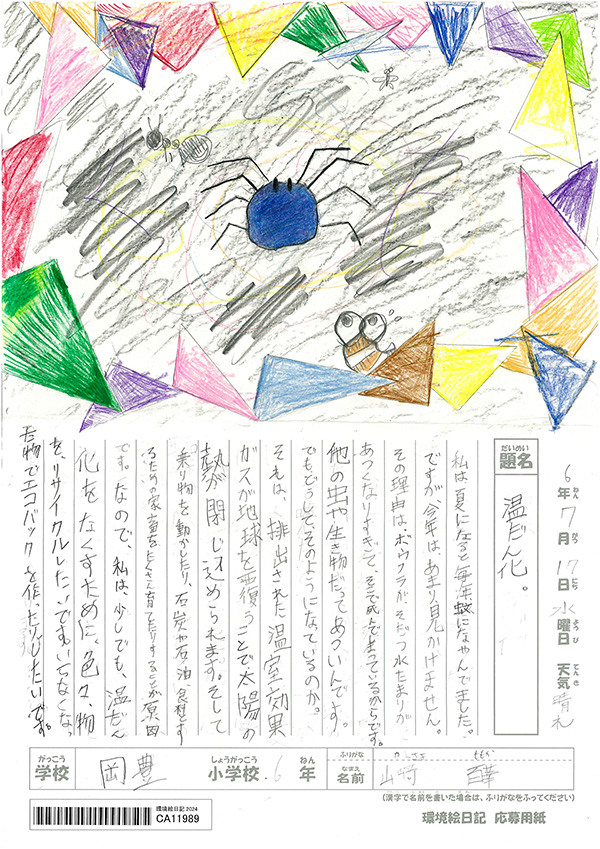 6年7月17日水曜日 天気 晴れ
ねん がつ にち ようび てんき
だいめい
題名
温だん化。
私は夏になると毎年蚊になやんでました。
ですが、今年は、あまり見かけません。
その理由は、ボウフラがそだつ水たまりが
あつくなりすぎて、そこで死んでしまっているからです。
他の虫や生き物だってあついんです。
でもどうして、そのようになているのか。
それは、排出された温室効果
ガスが地球を覆うことで太陽の
熱が閉じ込められます。そして
乗り物を動かしたり、石炭や石油、
るための家畜をたくさん育てたりすることが原因
です。なので、私は、少しでも、温だん
化をなくすために、色々、物
を、リサイクルしたいです。いらなくなっ
た物でエコバックを作ったりしたいです。
がっこう
学校
岡豊
しょうがっこう
小学校
6
ねん
年
ふりがな
なまえ
名前
山﨑
(漢字で名前を書いた場合は、ふりがなをふってください)
環境絵日記2024
CA11989
環境絵日記 応募用紙